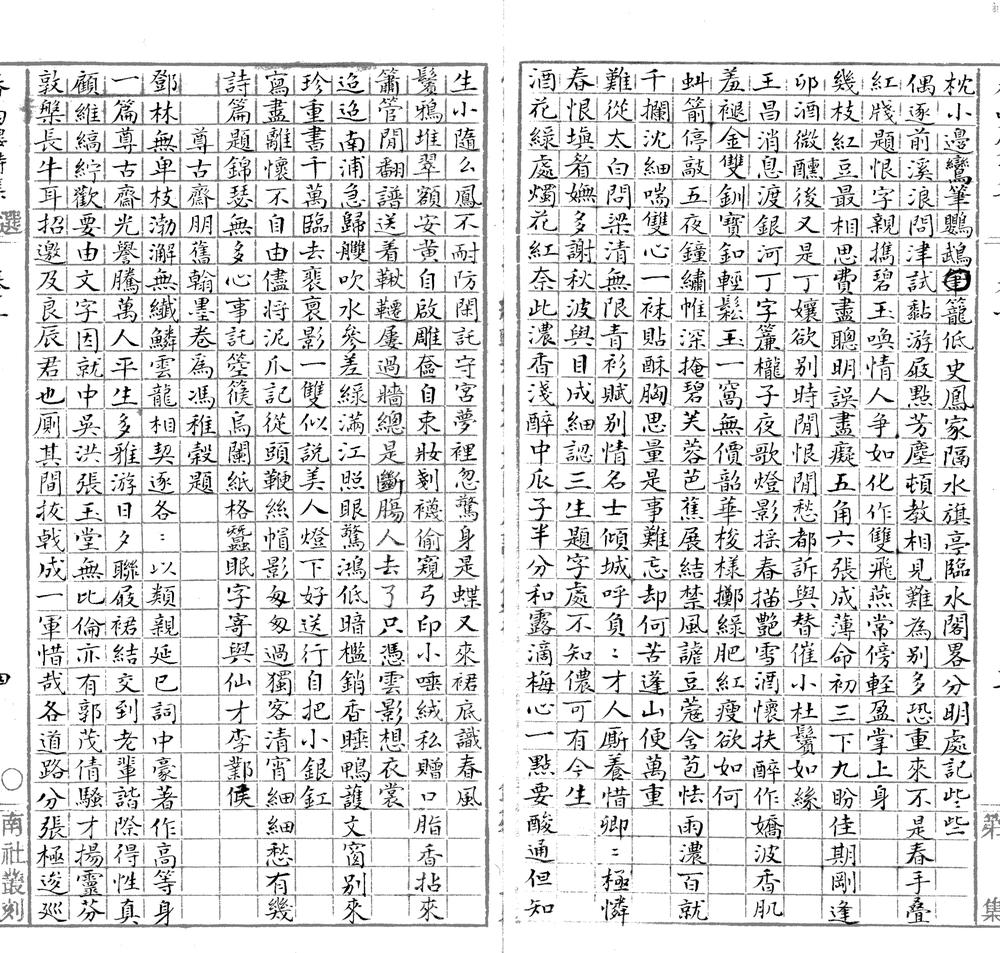 枕小邊鸞筆鸚鵡籠低史鳳家隔水旗亭臨水閣畧分明處記些些
偶逐前溪浪問津試黏游屐點芳塵頓教相見難為別多恐重來不是春手疊
紅牋題恨字親擕碧玉喚情人爭如化作雙飛燕常傍輕盈掌上身
幾枝紅豆最相思費盡聰明誤盡癡五角六張成薄命初三下九盼佳期剛逢
卯酒微醺後又是丁孃欲別時閒恨閒愁都訴與替催小杜鬢如絲
王昌消息渡銀河丁字簾櫳子夜歌燈影揺春描艷雪酒懷扶醉作嬌波香肌
羞褪金雙釧寶釦輕鬆玉一窩無價韶華梭樣擲綠肥紅瘦欲如何
虯箭停敲五夜鐘繡帷深掩碧芙蓉芭蕉展結禁風謔豆蔻含苞怯雨濃百就
千攔沈細喘雙心一袜貼酥胸思量是事難忘却何苦蓬山便萬重
難從太白問梁清無限青衫賦別情名士傾城呼負：才人厮養惜卿：極憐
春恨塡眉嫵多謝秋波與目成細認三生題字處不知儂可有今生
酒花綠處燭花紅奈此濃香淺醉中瓜子半分和露滴梅心一點要酸通但知
第 集
生小隨么鳳不耐防閑託守宮夢裡忽驚身是蝶又來裙底識春風
鬢鴉堆翠額安黃自啟雕奩自束妝剗襪偷窺弓印小唾絨私贈口脂香拈來
簫管閒翻譜送着鞦韆屢過牆總是斷腸人去了只憑雲影想衣裳
迢迢南浦急歸艭吹水參差綠滿江照眼驚鴻低暗檻銷香睡鴨護文窗別來
珍重書千萬臨去裴裒影一雙似說美人燈下好送行自把小銀釭
寫盡離懷不自由儘將泥爪記從頭鞭絲帽影匆匆過獨客清宵細細愁有幾
詩篇題錦瑟無多心事託箜篌烏闌紙格蠶眠字寄與仙才李鄴侯
尊古齋朋舊翰墨卷爲馮稚穀題
鄧林無卑枝渤澥無纖鱗雲龍相契逐各：以類親延巳詞中豪著作高等身
一篇尊古齋光譽騰萬人平生多雅游日夕聯屐裙結交到老輩諧際得性真
顧維縞紵歡要由文字因就中吳洪張玉堂無比倫亦有郭茂倩騷才揚靈芬
敦槃長牛耳招邀及良辰君也厠其間拔戟成一軍惜哉各道路分張極逡巡
選
四
南社叢刻